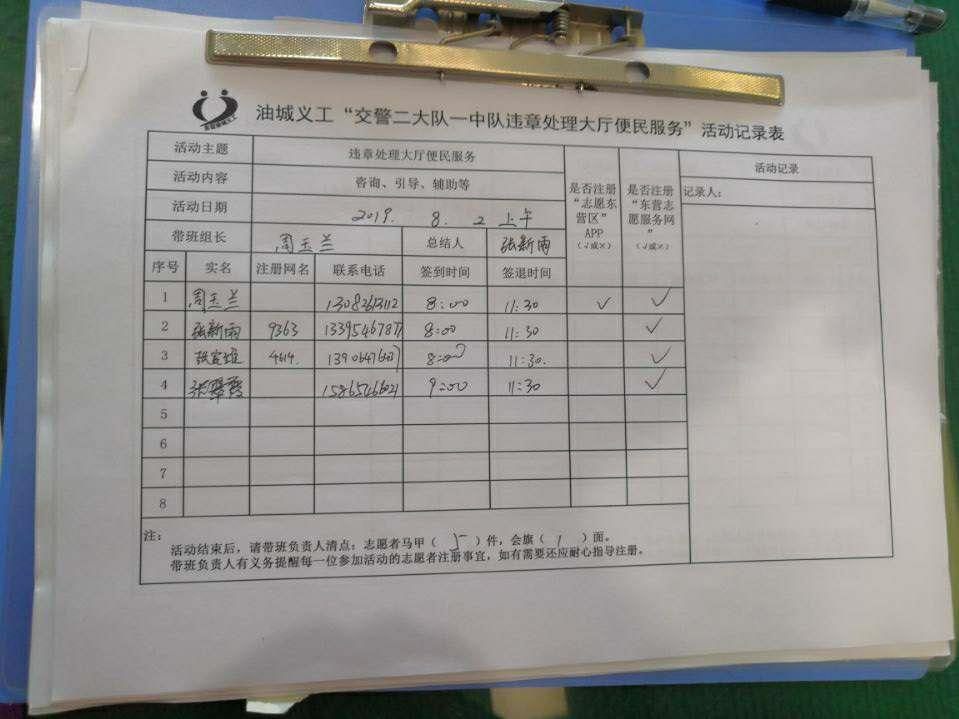 油城义工“交警二大队一中队违章处理大厅便民服务”活动记录表
活动主题 违章处理大厅便民服务
活动内容 咨询、引导、辅助等
活动日期 2019. 8. 2 上午
带班组长 周玉兰 总结人 张新雨
是否注册“志愿东营区”APP（√或×）
是否注册“东营志愿服务网”（√或×）
活动记录
记录人：
序号 实名 注册网名 联系电话 签到时间 签退时间
1 周玉兰 13082613112 8:00 11:30 ✓ ✓
2 张新雨 9363 13395467877 8:00 11:30 ✓
3 4614. 8:00 11:30. ✓
4 15865466021 9:00 11:30 ✓
5
6
7
8
注：
活动结束后，请带班负责人清点：志愿者马甲（ 5 ）件，会旗（ 1 ）面。
带班负责人有义务提醒每一位参加活动的志愿者注册事宜，如有需要还应耐心指导注册。